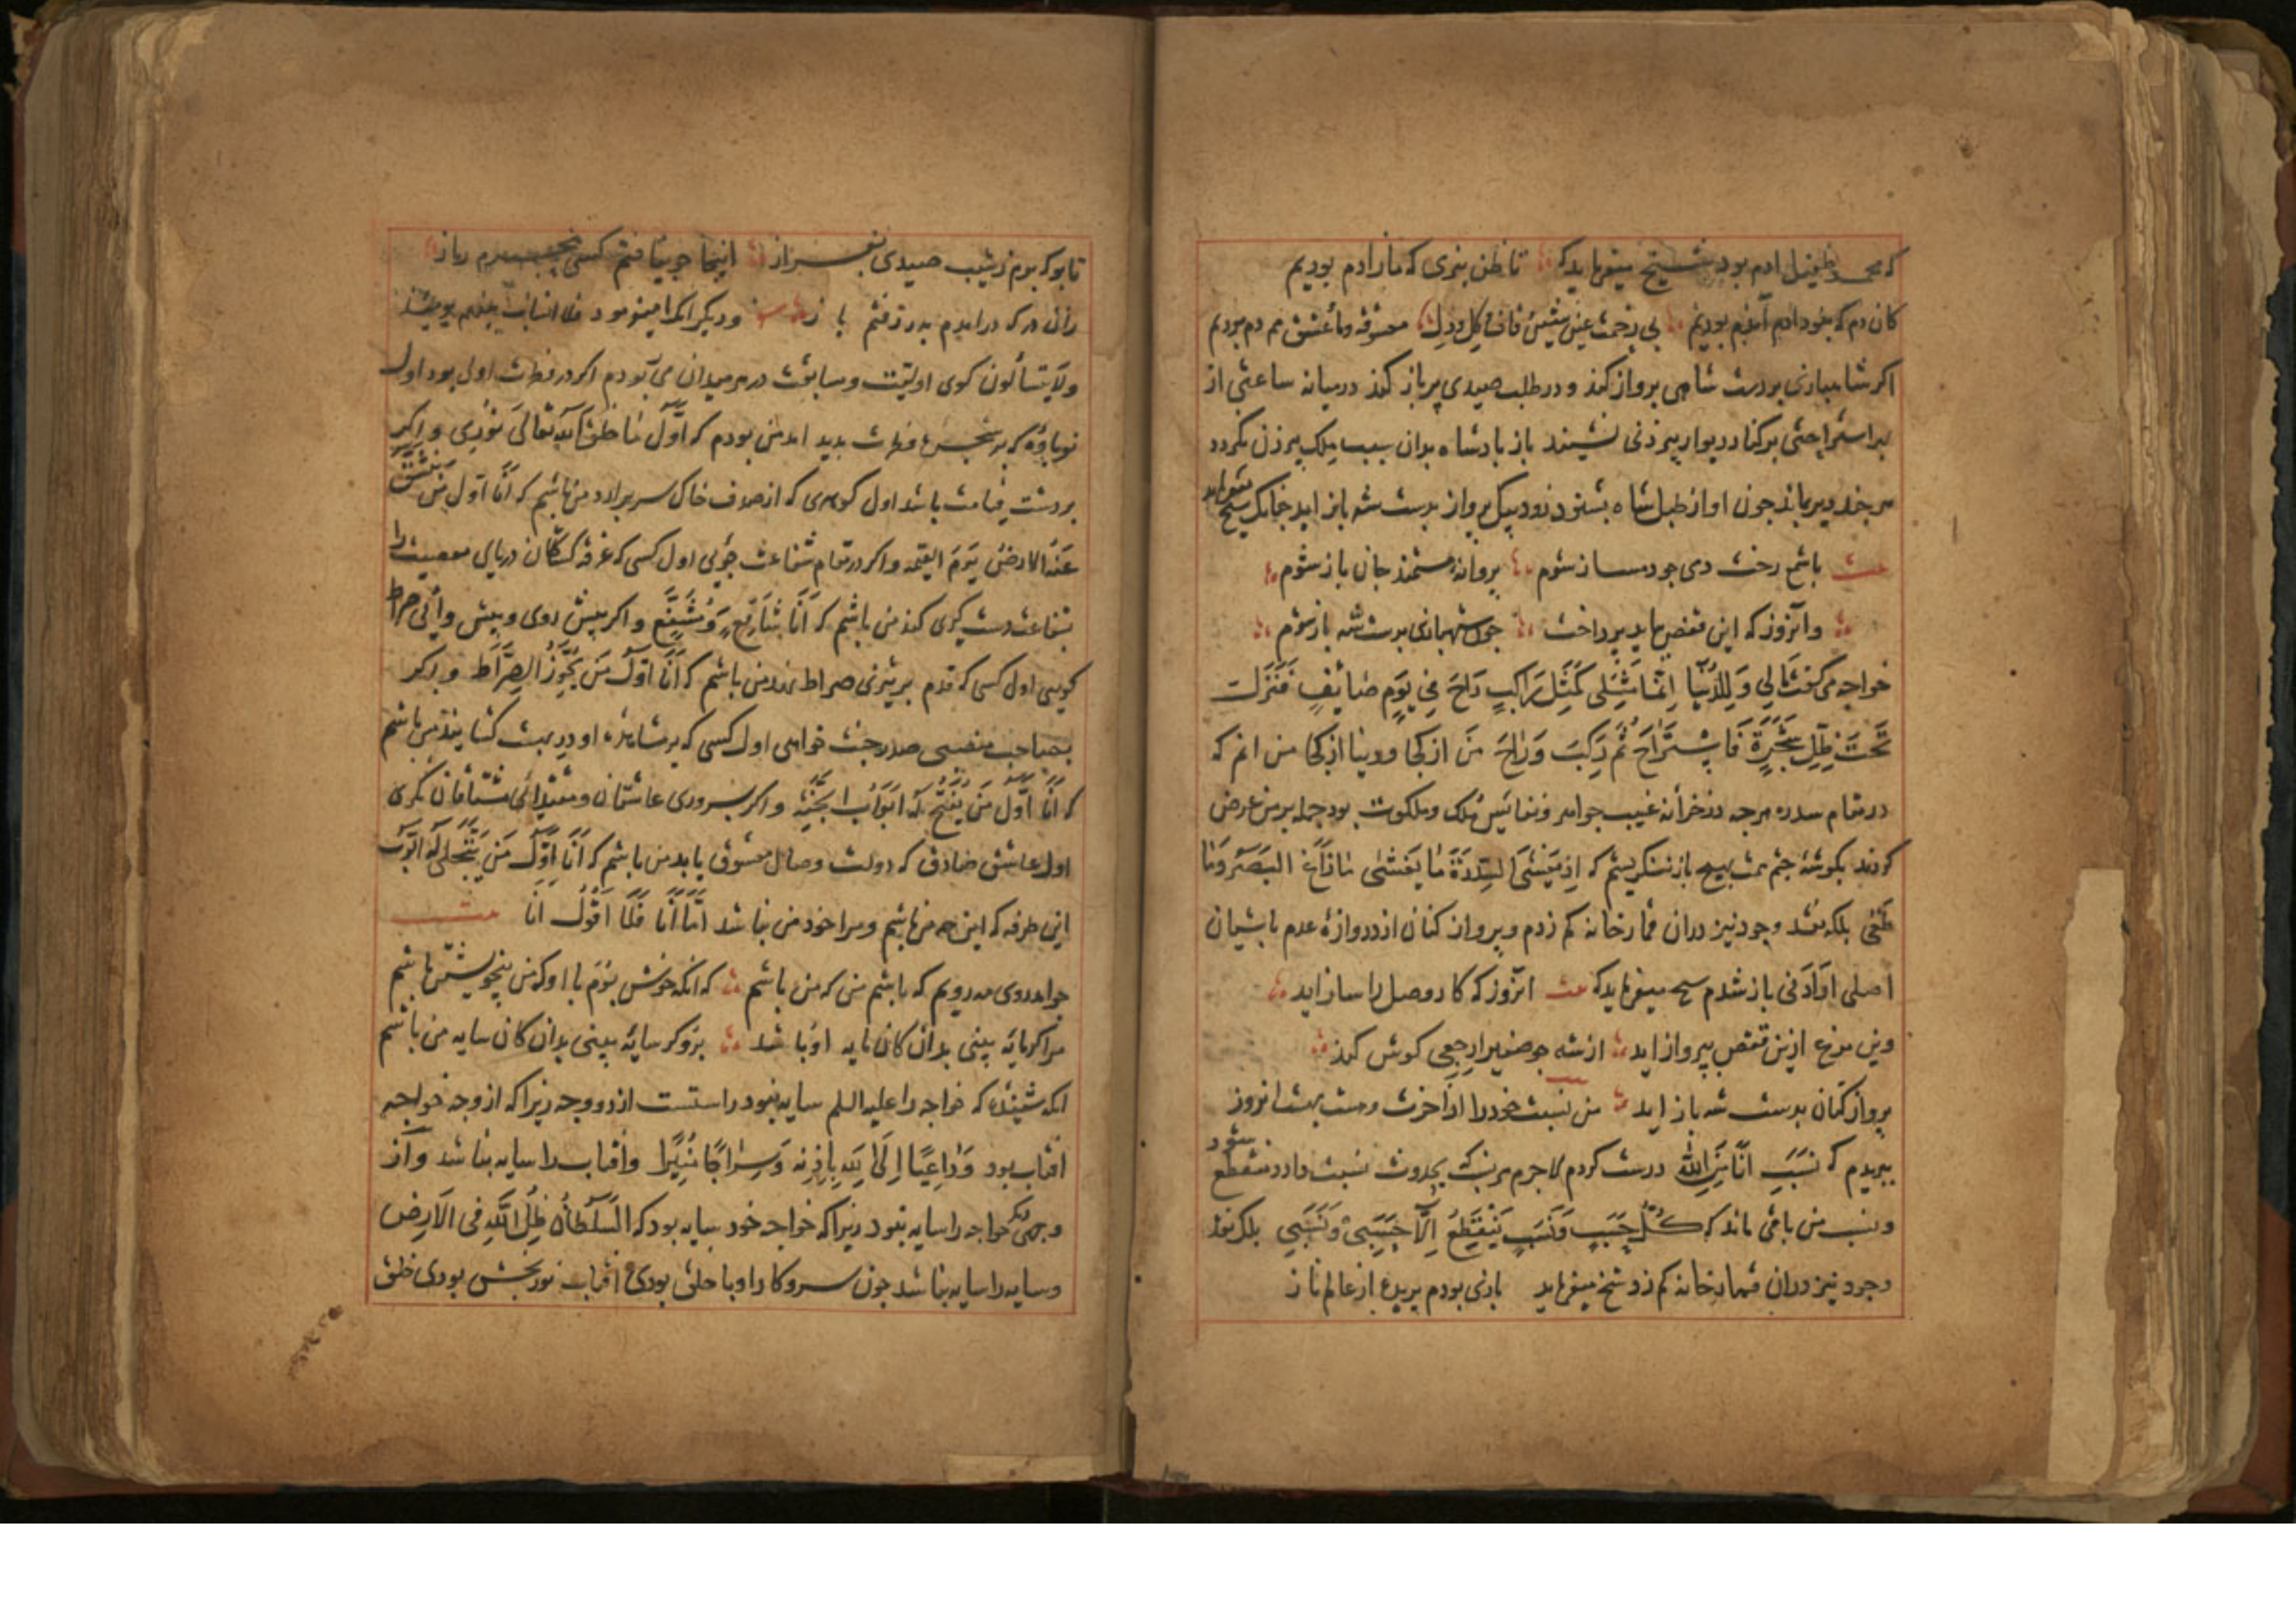 که محمد طفیل ادم بود شیخ میفرماید که تا ظن نبری که ما ز ادم بودیم
کان دم که نبود ادم آندم بودیم بی زحمت عین و شین و قاف و کل و دل معشوقه و ما و عشق هم دم بودیم
اکر شاهبازی بر دست شاهی پرواز کند و در طلب صیدی پر باز کند در میانه ساعتی از
بر استراحتی بر کنار دیوار پیرزنی نشیند باز پادشاه بدان سبب ملک پیرزن نکردد
هر چند دیر بماند چون اواز طبل شاه بشنود زود بیک پرواز بدست شه باز اید چنانک شیخ میفرماید
باشمع رخت دمی چو دمساز شوم پروانه مستمند جان باز شوم
وآنروز که این قفص بباید پرداخت چون شهبازی بدست شه باز شوم
خواجه می کفت مَالِی وَلِلدُّنْیَا اِنَّمَا مَثَلِی کَمَثَلِ رَاکِبٍ رَاحَ فِی یَوْمٍ صَائِفٍ فَنَزَلَت
تَحْتَ ظِلِّ شَجَرَةٍ فَاسْتَرَاحَ ثُمَّ رَکِبَ وَرَاحَ من از کجا و دنیا از کجا من انم که
در مقام سدره هر چه در خزانه غیب جواهر و نفائیس ملک و ملکوت بود جمله بر من عرض
کردند بکوشه چشم همت بهیچ باز ننکریستم که اِذ یَغْشَی السِّدْرَةَ مَا یَغْشَی مَا زَاغَ البَصَرُ وَمَا
طَغَی بلکه نقد وجود نیز دران قمارخانه کم زدم و پرواز کنان از دروازه عدم باشیان
اصلی اَوْ اَدْنَی باز شدم شیخ میفرماید که انروز که کار وصل را ساز اید
وین مرغ ازین قفص بپرواز اید از شه چو صفیر ارجعی کوش کند
پرواز کنان بدست شه باز اید من نسبت خود را از اخرت و هشت بهشت انروز
ببریدم که نسب اَنَا مِنَ اللّٰه درست کردم لاجرم هر نسب که بحدوث نسبت دارد منقطع شود
ونسب من باقی ماند که کُلُّ حَسَبٍ وَنَسَبٍ یَنْقَطِعُ اِلَّا حَسَبِی وَنَسَبِی بلکه نقد
وجود نیز دران قمارخانه کم زد شیخ میفرماید بازی بودم پریده از عالم ناز
تا بو که برم ز شیب صیدی بفراز اینجا چو نیافتم کسی محرم راز
زان در که درامدم بدر رفتم باز و دیکر انکرا میفرمود فلا انساب بینهم یومئذ
ولا یتسألون کوی اولیت و سابقت در هر میدان می ربودم اکر در فطرت اولی بود اول
نوباوه که بر شجره فطرت پدید امد من بودم که اَوَّلُ مَا خَلَقَ اللّٰه تَعَالَی نُوْرِی و اکر
بر دشت قیامت باشد اول کوهری که از صدف خاک سر برارد من باشم که اَنَا اَوَّلُ مَن یَنْشَقُّ
عَنْهُ الارضُ یَوْمَ القیمه و اکر در مقام شفاعت جویی اول کسی که غرقه کشتکان دریای معصیت را
بشفاعت دست کیری کند من باشم که اَنَا شَافِعٍ وَمُشَفَّع و اکر بیش روی و بیش وائی صراط
کویی اول کسی که قدم بر تیزی صراط نهد من باشم که اَنَا اَوَّلُ مَن یُجَوِّزُ الصِّرَاط و اکر
بصاحب منصبی صدر جنت خواهی اول کسی که بر مشاهده او در بهشت کشایند من باشم
که اَنَا اَوَّلُ مَنْ یُفْتَحُ لَه اَبْوَابُ الجَنَّةِ و اکر بسروری عاشقان و مقتدائی مشتاقان نکری
اول عاشق صادق که دولت وصال معشوق یابد من باشم که اَنَا اَوَّلُ مَن یَتَجَلَّی لَهُ الرَّبُّ
این طرفه که این همه من باشم و مرا خود من نباشد اَمَّا اَنَا فَلَا اَقُوْلُ اَنَا
چو امد روی مه رویم که باشم من که من باشم که انکه خوش بوم با او که من بیخویشتن باشم
مرا کر مایه بینی بدان کان مایه او باشد برو کر سایه بینی بدان کان سایه من باشم
انکه شنیده که خواجه را علیه السلم سایه نبود راستست از دو وجه زیرا که از وجه خواجه
افتاب بود وَدَاعِیًا اِلَی اللّٰه بِاِذْنِه وَسِرَاجًا مُنِیْرًا وافتاب را سایه نباشد و از
وجهی دیکر خواجه را سایه نبود زیرا که خواجه خود سایه بود که السُّلْطَانُ ظِلُّ اللّٰهِ فِی الْاَرْضِ
وسایه را سایه نباشد چون سر و کار او با خلق بودی افتاب نوربخش بودی خلق